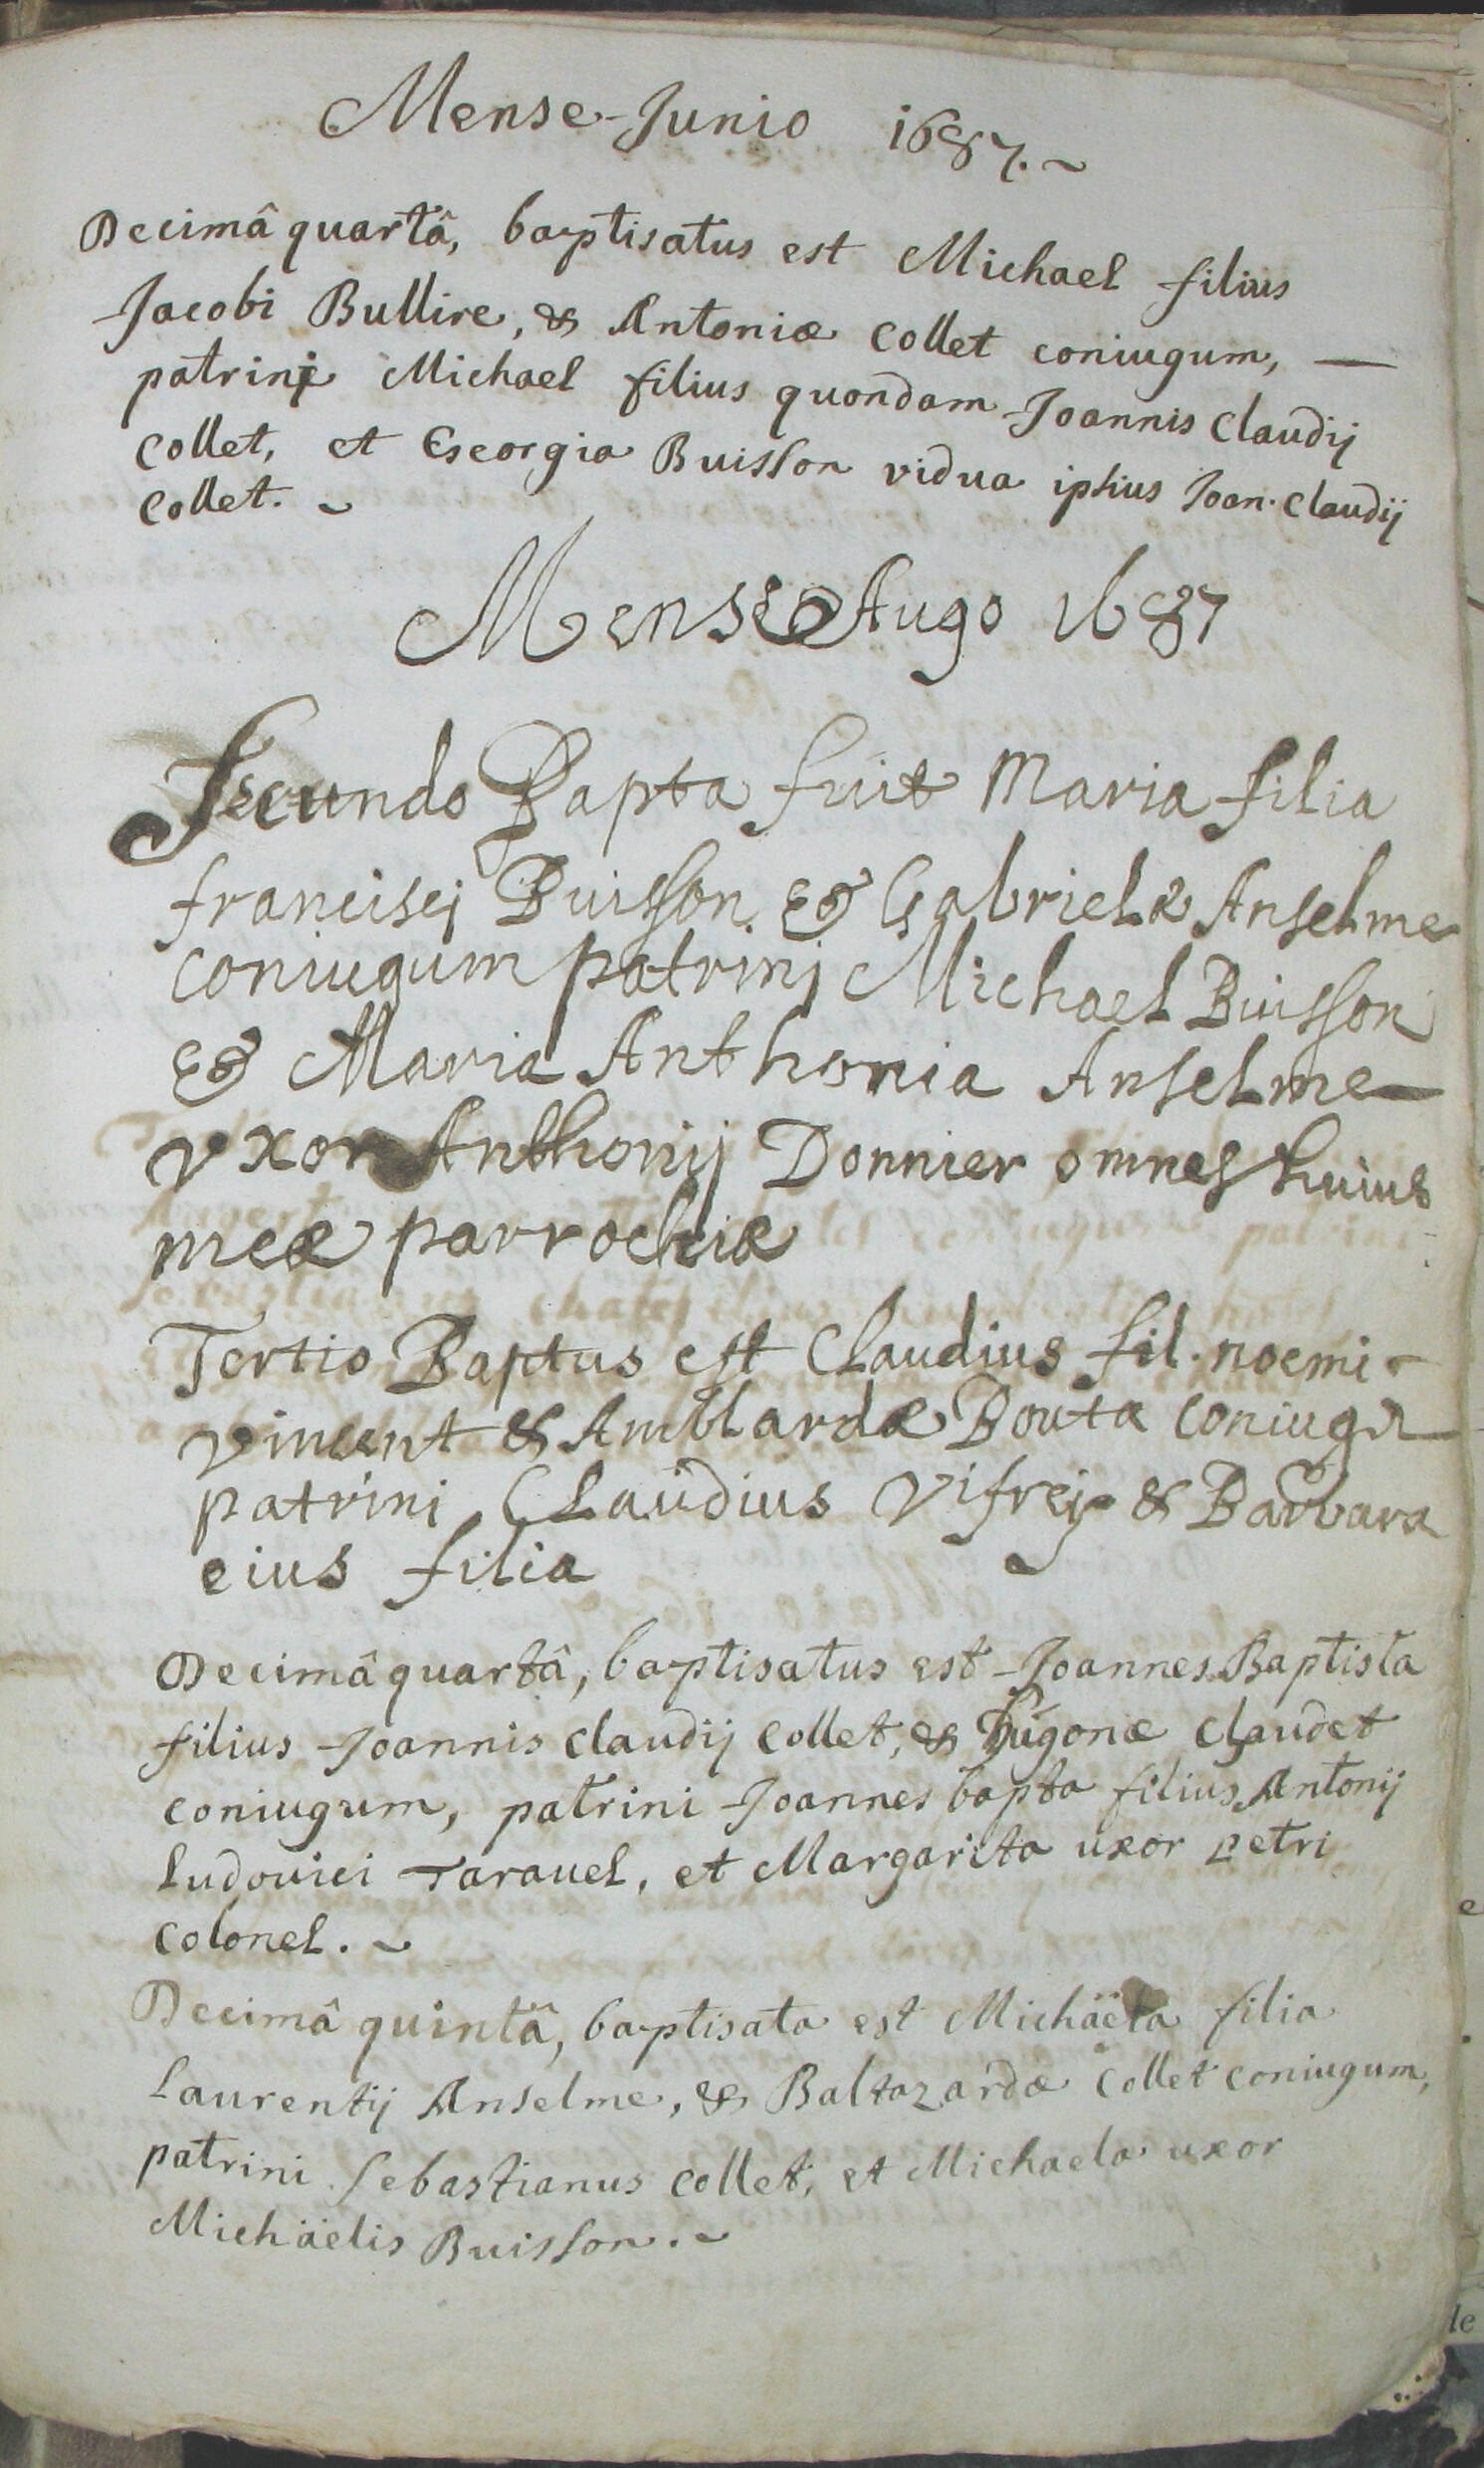 Mense Junio 1687.
Decimâ quartâ, baptisatus est Michael filius
Jacobi Bullire, & Antoniæ Collet coniugum, —
patrini Michael filius quondam Joannis Claudij
Collet, et Georgia Buisson vidua ipsius Joan. Claudij
Collet.
Mense Augo 1687
Secundo Bapta fuit Maria filia
francisci Buisson & Gabrielæ Anselme
coniugum patrinj Michael Buisson
& Maria Anthonia Anselme
vxor Anthonij Donnier omnes huius
meæ parrochiæ
Tertio Baptus est Claudius fil. noemi
vincent & Amblardæ Bouta
patrini Claudius Vifrej & Barbara
eius filia
Decimâ quartâ, baptisatus est Joannes Baptista
filius Joannis Claudij Collet, & Hugonæ Claudet
coniugum, patrini Joannes bapta filius Antonij
Ludouici Tarauel, et Margarita uxor petri
Colonel.
Decimâ quintâ, baptisata est Michäela filia
Laurentij Anselme, & Baltazardæ Collet coniugum,
patrini Sebastianus Collet, et Michaela uxor
Michäelis Buisson.